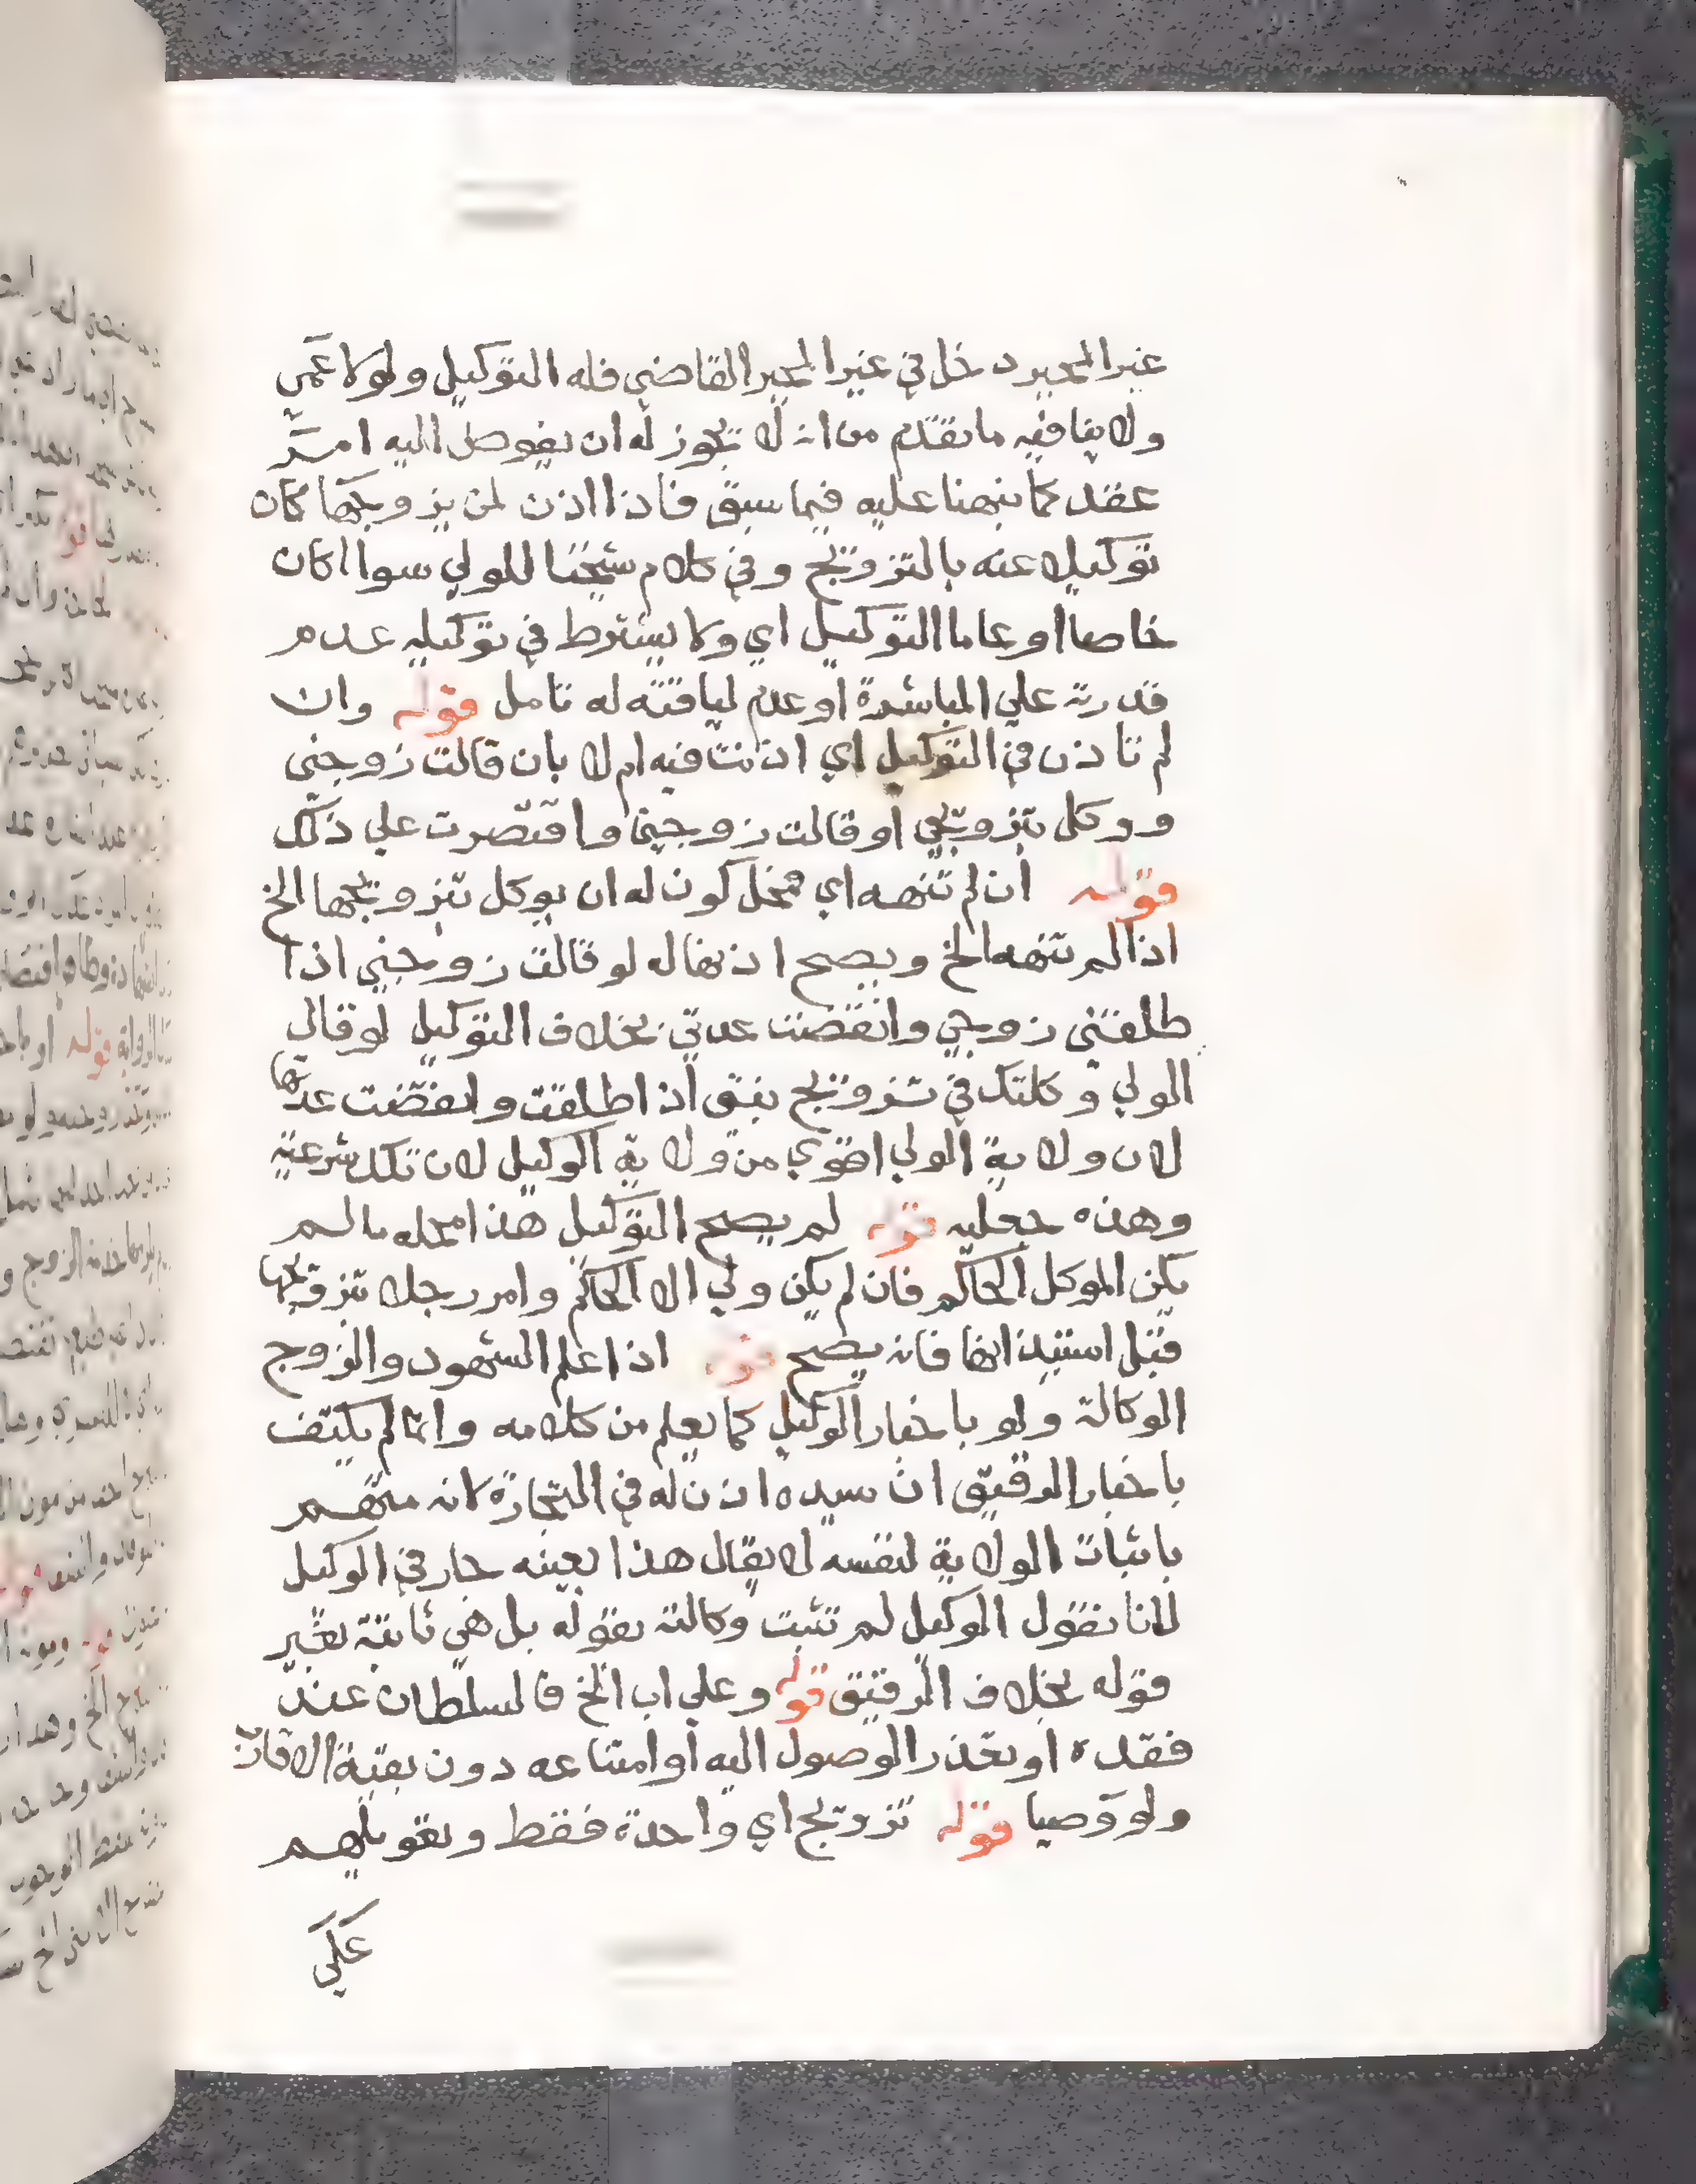 غير المجبر دخل في غير المجبر القاضي فله التوكيل ولو لاعمي
ولا ينافيه ما تقدم من انه لا يجوز له ان يفوض اليه امر
عقد كما نبهنا عليه فيما سبق فاذا اذن لمن يزوجها كان
توكيلا عنه بالتزويج وفي كلام شيخنا للولي سوا اكان
خاصا او عاما التوكيل اي ولا يشترط في توكيله عدم
قدرته علي المباشرة او عدم لياقته له تامل قوله وان
لم تاذن في التوكيل اي اذنت فيه ام لا بان قالت زوجني
ووكل بتزويجي او قالت زوجني واقتصرت علي ذلك
قوله ان لم تنهه اي محل كون له ان يوكل بتزويجها الخ
اذا لم تنهه الخ ويصح اذنها له لو قالت زوجني اذا
طلقني زوجي وانقضت عدتي بخلاف التوكيل لو قال
الولي وكلتك في تزويج بنتي اذا طلقت وانقضت عدتها
لان ولاية الولي اقوي من ولاية الوكيل لان تلك شرعية
وهذه جعليه قوله لم يصح التوكيل هذا محله ما لم
يكن الموكل الحاكم فان لم يكن ولي الا الحاكم وامر رجلا بتزويجها
قبل استيذانها فانه يصح قوله اذا علم الشهود والزوج
الوكالة ولو باخبار الوكيل كما يعلم من كلامه وانما لم يكتف
باخبار الرقيق ان سيده اذن له في التجارة لانه متهم
باثبات الولاية لنفسه لا يقال هذا بعينه جار في الوكيل
لانا نقول الوكيل لم تثبت وكالته بقوله بل هي ثابتة بغير
قوله بخلاف الرقيق قوله وعلي اب الخ فالسلطان عند
فقده او تعذر الوصول اليه او امتناعه دون بقية الاقارب
ولو وصيا قوله تزويج اي واحدة فقط وبقولهم